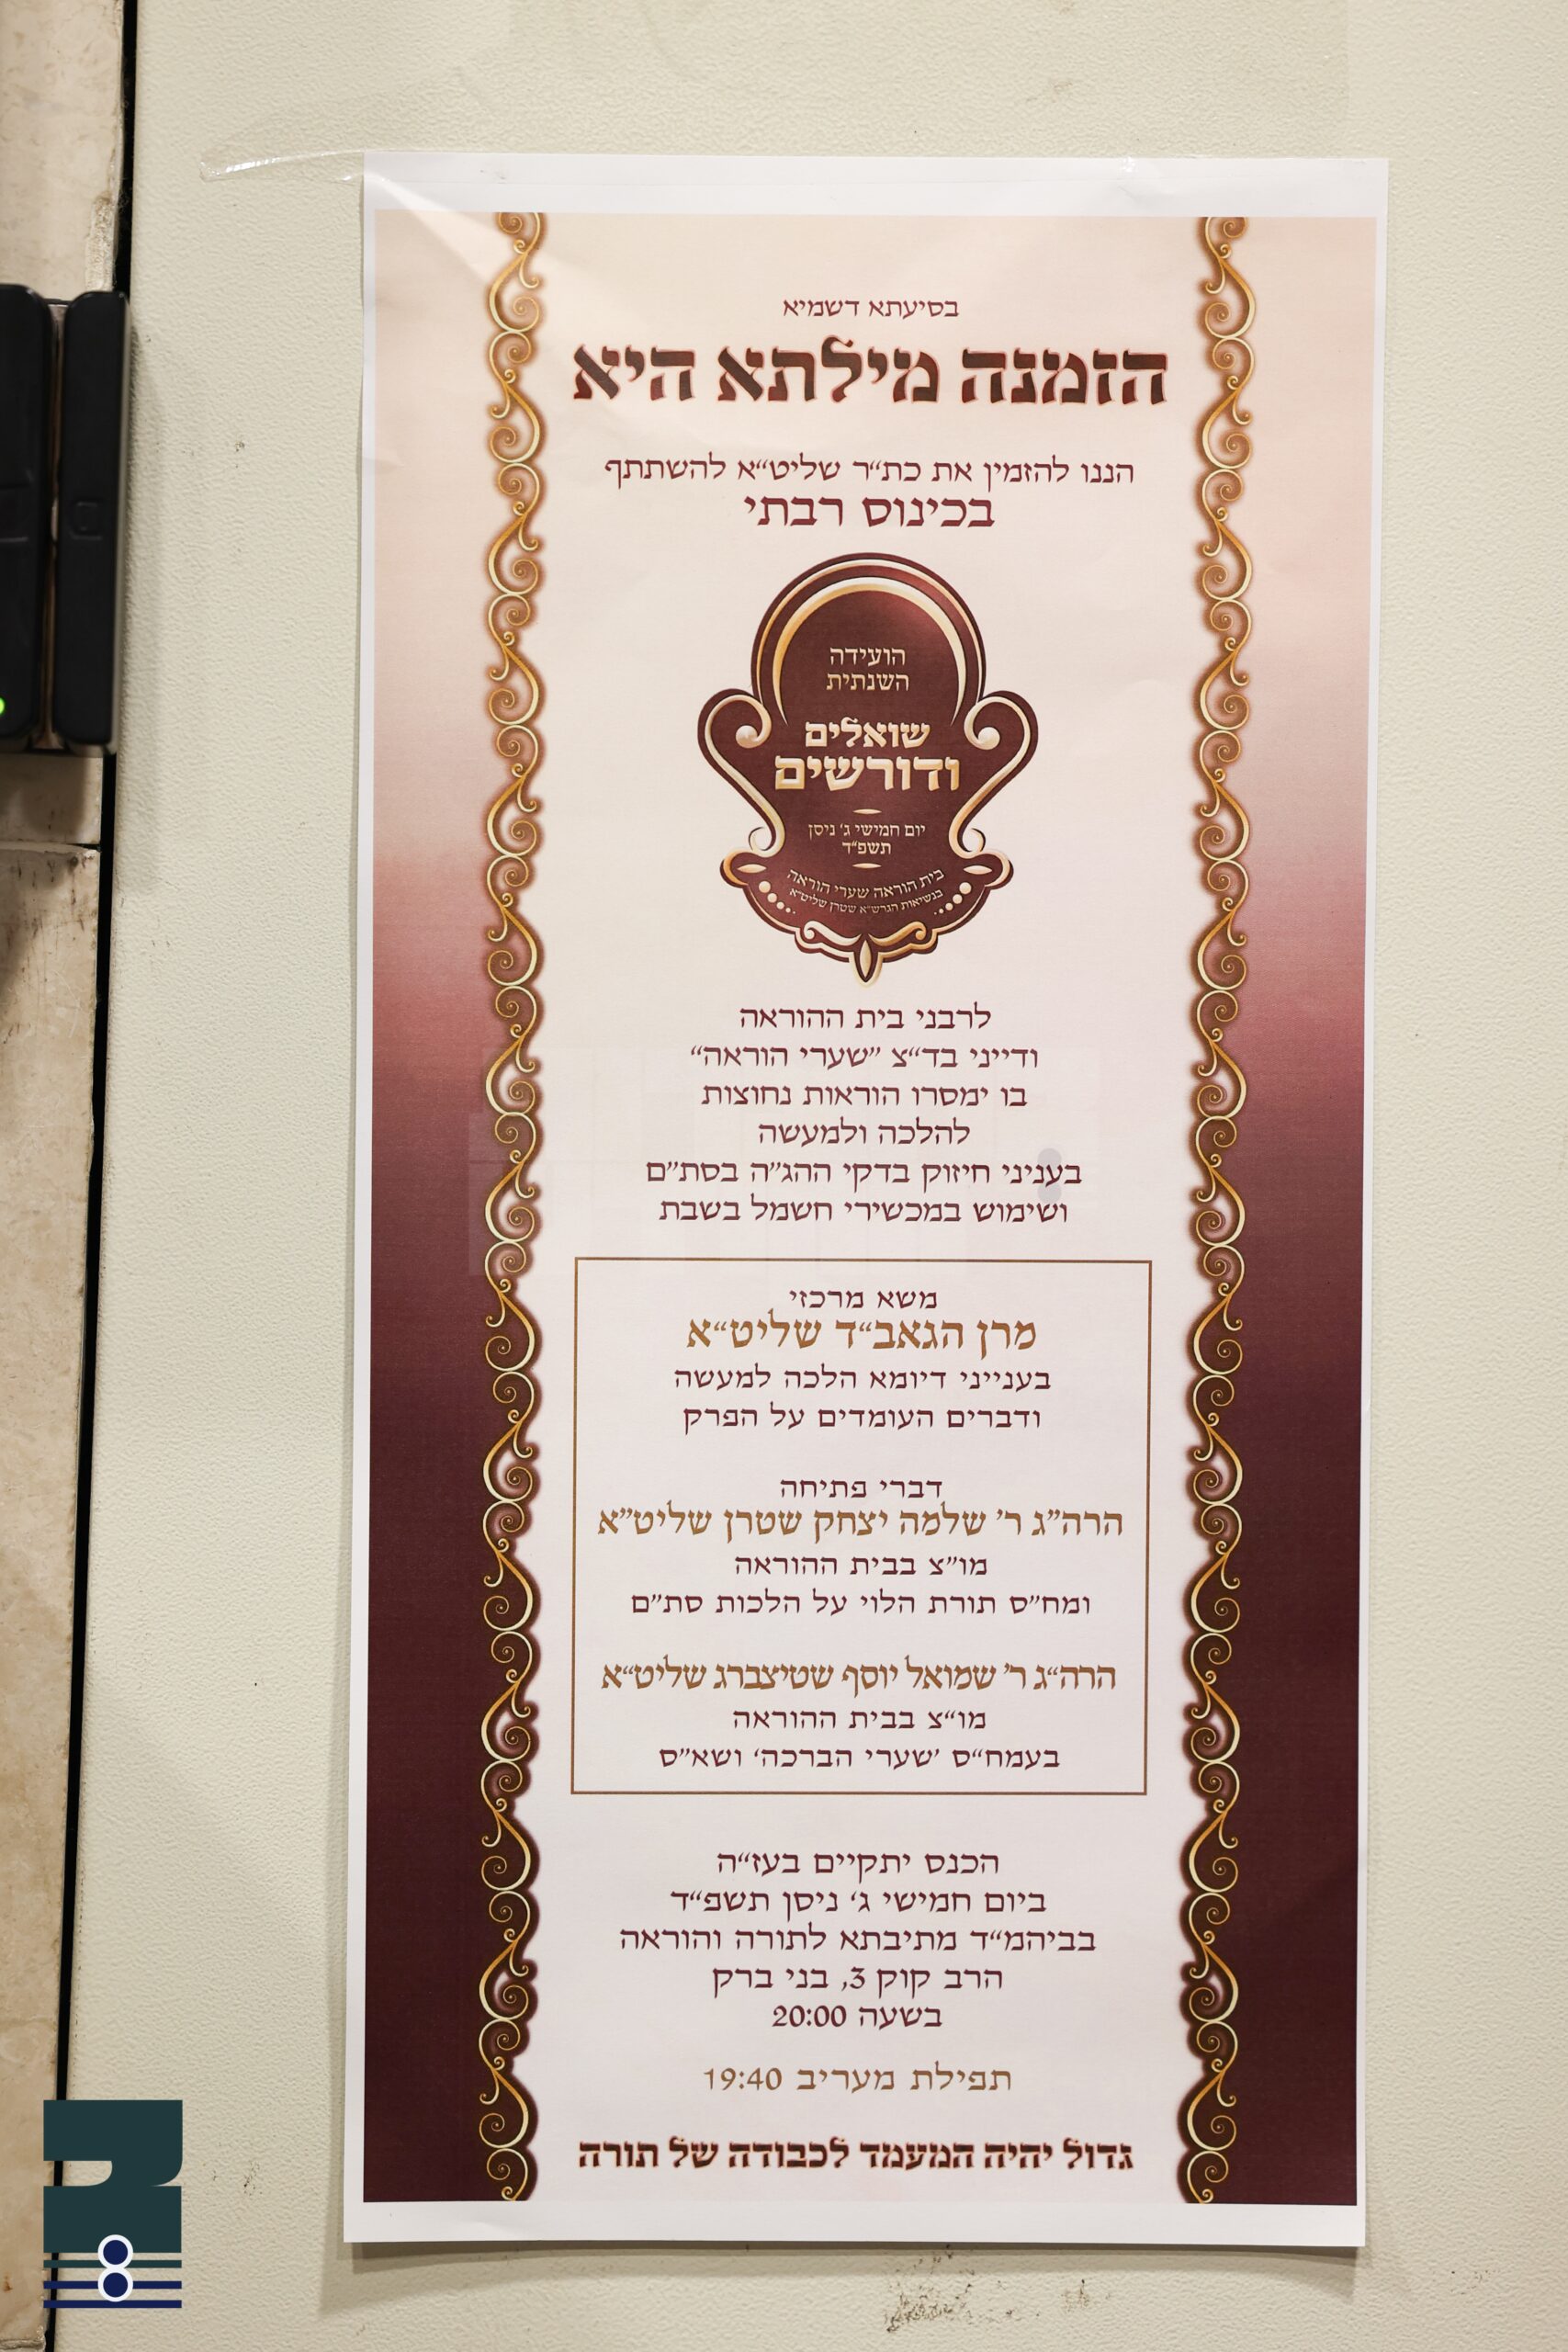 בסיעתא דשמיא
הזמנה מילתא היא
הננו להזמין את כת״ר שליט״א להשתתף
בכינוס רבתי
הועידה
השנתית
שואלים
ודורשים
יום חמישי ג׳ ניסן
תשפ״ד
בית הוראה שערי הוראה
בנשיאות הגרש״א שטרן שליט״א
לרבני בית ההוראה
ודייני בד״צ ״שערי הוראה״
בו ימסרו הוראות נחוצות
להלכה ולמעשה
בעניני חיזוק בדקי ההג״ה בסת״ם
ושימוש במכשירי חשמל בשבת
משא מרכזי
מרן הגאב״ד שליט״א
בענייני דיומא הלכה למעשה
ודברים העומדים על הפרק
דברי פתיחה
הרה״ג ר׳ שלמה יצחק שטרן שליט״א
מו״צ בבית ההוראה
ומח״ס תורת הלוי על הלכות סת״ם
הרה״ג ר׳ שמואל יוסף שטיצברג שליט״א
מו״צ בבית ההוראה
בעמח״ס ׳שערי הברכה׳ ושא״ס
הכנס יתקיים בעז״ה
ביום חמישי ג׳ ניסן תשפ״ד
בביהמ״ד מתיבתא לתורה והוראה
הרב קוק 3, בני ברק
בשעה 20:00
תפילת מעריב 19:40
גדול יהיה המעמד לכבודה של תורה